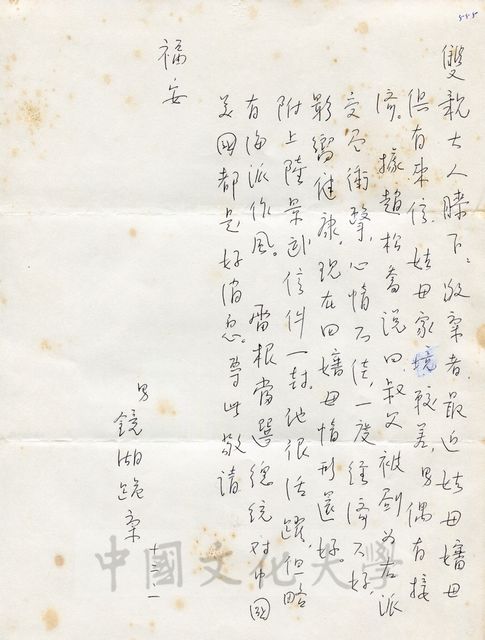 雙親大人膝下：敬稟者，最近姑母嬸母
俱有来信，姑母家境較差，男偶有接
濟。據趙松喬說四叔父被劃为右派
受过衝擊，心情不佳，一度經濟不好，
影響健康，現在四嬸母情形還好。
附上陸景武信件一封，他很活躍，但略
有海派作風。雷根當選總統对中國
美國都是好消息。專此敬請
福安
男 鏡湖跪稟 十二、一
中國文化大學